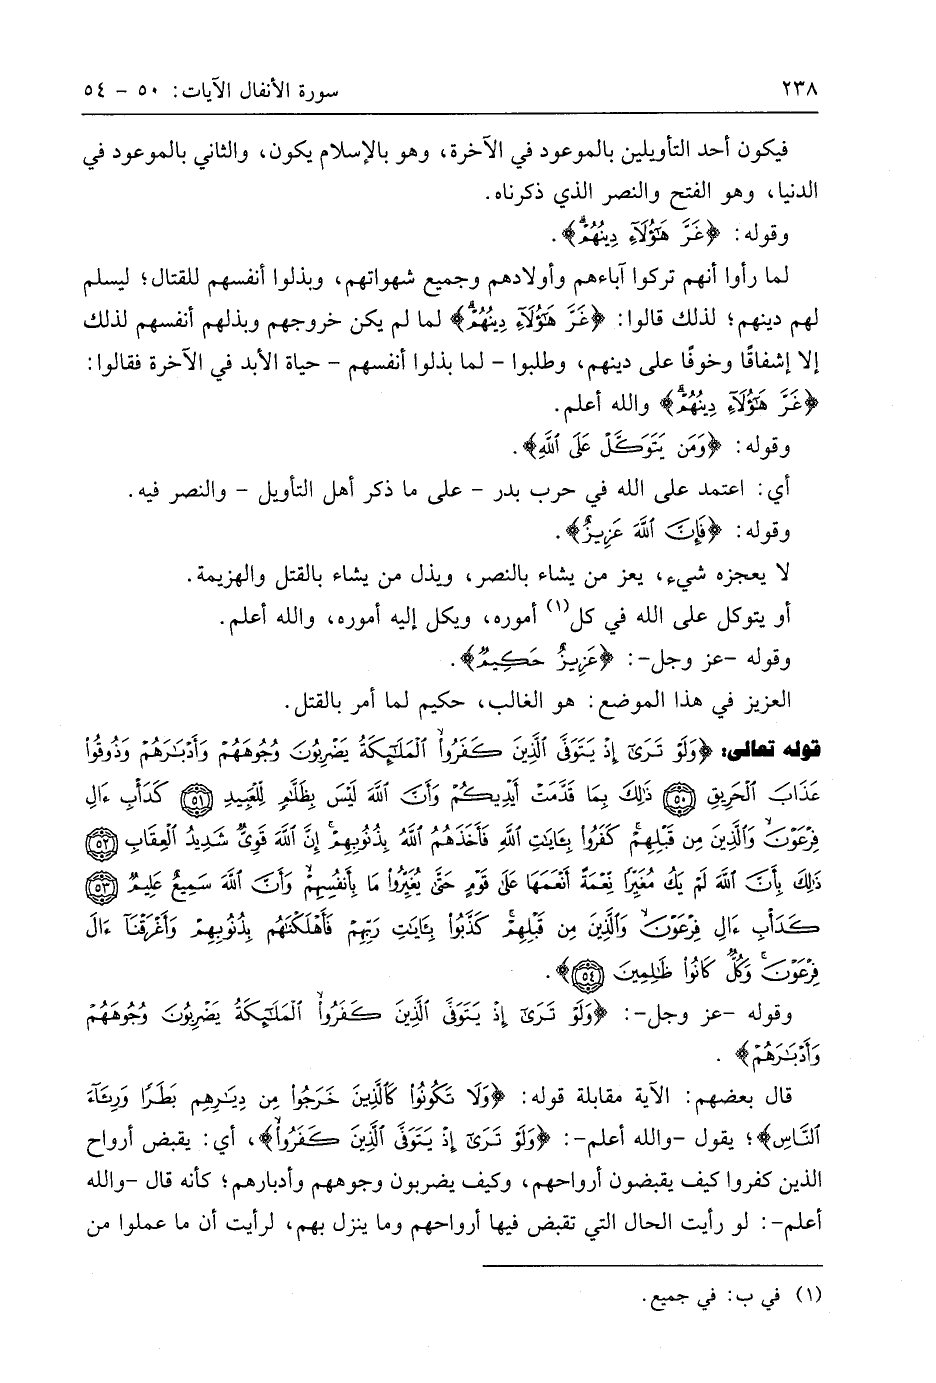 ٢٣٨ سورة الأنفال الآيات: ٥٠ - ٥٤
فيكون أحد التأويلين بالموعود في الآخرة، وهو بالإسلام يكون، والثاني بالموعود في
الدنيا، وهو الفتح والنصر الذي ذكرناه.
وقوله: ﴿غَرَّ هَٰٓؤُلَآءِ دِينُهُمْۗ﴾.
لما رأوا أنهم تركوا آباءهم وأولادهم وجميع شهواتهم، وبذلوا أنفسهم للقتال؛ ليسلم
لهم دينهم؛ لذلك قالوا: ﴿غَرَّ هَٰٓؤُلَآءِ دِينُهُمْۗ﴾ لما لم يكن خروجهم وبذلهم أنفسهم لذلك
إلا إشفاقًا وخوفًا على دينهم، وطلبوا - لما بذلوا أنفسهم - حياة الأبد في الآخرة فقالوا:
﴿غَرَّ هَٰٓؤُلَآءِ دِينُهُمْۗ﴾ والله أعلم.
وقوله: ﴿وَمَن يَتَوَكَّلْ عَلَى ٱللَّهِ﴾.
أي: اعتمد على الله في حرب بدر - على ما ذكر أهل التأويل - والنصر فيه.
وقوله: ﴿فَإِنَّ ٱللَّهَ عَزِيزٌ﴾.
لا يعجزه شيء، يعز من يشاء بالنصر، ويذل من يشاء بالقتل والهزيمة.
أو يتوكل على الله في كل(١) أموره، ويكل إليه أموره، والله أعلم.
وقوله -عز وجل-: ﴿عَزِيزٌ حَكِيمٌ﴾.
العزيز في هذا الموضع: هو الغالب، حكيم لما أمر بالقتل.
قوله تعالى: ﴿وَلَوْ تَرَىٰٓ إِذْ يَتَوَفَّى ٱلَّذِينَ كَفَرُوا۟ۙ ٱلْمَلَٰٓئِكَةُ يَضْرِبُونَ وُجُوهَهُمْ وَأَدْبَٰرَهُمْ وَذُوقُوا۟
عَذَابَ ٱلْحَرِيقِ ﴿٥٠﴾ ذَٰلِكَ بِمَا قَدَّمَتْ أَيْدِيكُمْ وَأَنَّ ٱللَّهَ لَيْسَ بِظَلَّٰمٍ لِّلْعَبِيدِ ﴿٥١﴾ كَدَأْبِ ءَالِ
فِرْعَوْنَۙ وَٱلَّذِينَ مِن قَبْلِهِمْۚ كَفَرُوا۟ بِـَٔايَٰتِ ٱللَّهِ فَأَخَذَهُمُ ٱللَّهُ بِذُنُوبِهِمْۚ إِنَّ ٱللَّهَ قَوِىٌّ شَدِيدُ ٱلْعِقَابِ ﴿٥٢﴾
ذَٰلِكَ بِأَنَّ ٱللَّهَ لَمْ يَكُ مُغَيِّرًا نِّعْمَةً أَنْعَمَهَا عَلَىٰ قَوْمٍ حَتَّىٰ يُغَيِّرُوا۟ مَا بِأَنفُسِهِمْۙ وَأَنَّ ٱللَّهَ سَمِيعٌ عَلِيمٌ ﴿٥٣﴾
كَدَأْبِ ءَالِ فِرْعَوْنَۙ وَٱلَّذِينَ مِن قَبْلِهِمْۚ كَذَّبُوا۟ بِـَٔايَٰتِ رَبِّهِمْ فَأَهْلَكْنَٰهُم بِذُنُوبِهِمْ وَأَغْرَقْنَآ ءَالَ
فِرْعَوْنَۚ وَكُلٌّ كَانُوا۟ ظَٰلِمِينَ ﴿٥٤﴾﴾.
وقوله -عز وجل-: ﴿وَلَوْ تَرَىٰٓ إِذْ يَتَوَفَّى ٱلَّذِينَ كَفَرُوا۟ۙ ٱلْمَلَٰٓئِكَةُ يَضْرِبُونَ وُجُوهَهُمْ
وَأَدْبَٰرَهُمْ﴾ .
قال بعضهم: الآية مقابلة قوله: ﴿وَلَا تَكُونُوا۟ كَٱلَّذِينَ خَرَجُوا۟ مِن دِيَٰرِهِم بَطَرًا وَرِئَآءَ
ٱلنَّاسِ﴾؛ يقول -والله أعلم-: ﴿وَلَوْ تَرَىٰٓ إِذْ يَتَوَفَّى ٱلَّذِينَ كَفَرُوا۟ۙ﴾، أي: يقبض أرواح
الذين كفروا كيف يقبضون أرواحهم، وكيف يضربون وجوههم وأدبارهم؛ كأنه قال -والله
أعلم-: لو رأيت الحال التي تقبض فيها أرواحهم وما ينزل بهم، لرأيت أن ما عملوا من
(١) في ب: في جميع.